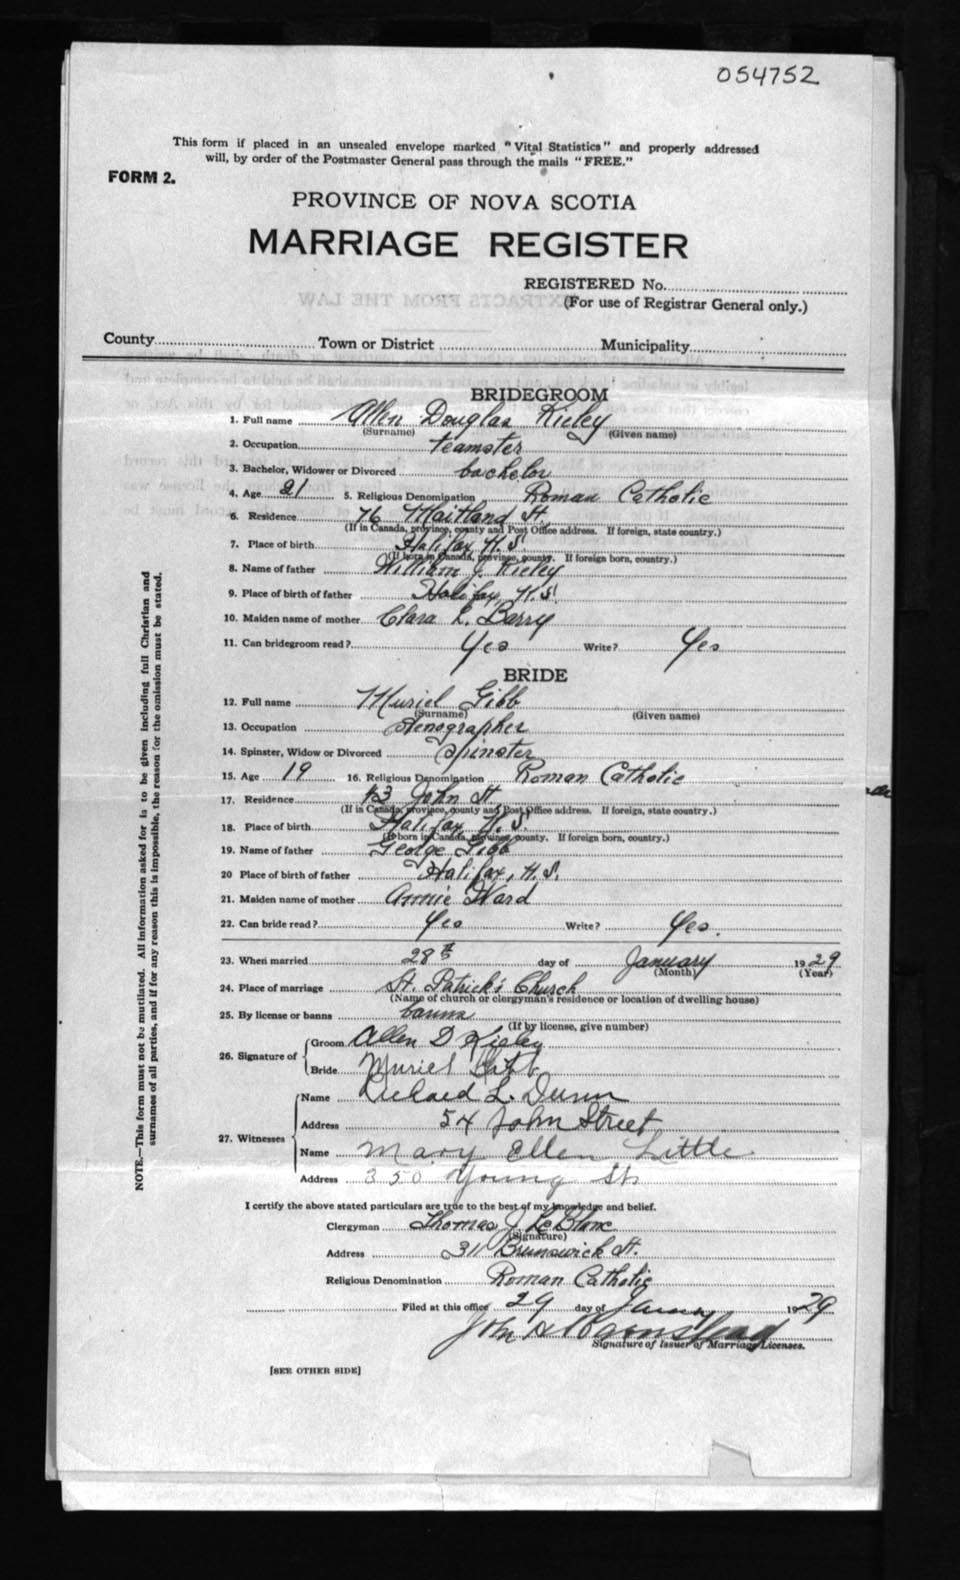 054752
This form if placed in an unsealed envelope marked "Vital Statistics" and properly addressed
will, by order of the Postmaster General pass through the mails "FREE."
FORM 2.
PROVINCE OF NOVA SCOTIA
MARRIAGE REGISTER
REGISTERED No.
(For use of Registrar General only.)
County Town or District Municipality
BRIDEGROOM
1. Full name Allen Douglas Kieley
(Surname) (Given name)
2. Occupation teamster
3. Bachelor, Widower or Divorced bachelor
4. Age 21 5. Religious Denomination Roman Catholic
6. Residence 76 Maitland St.
(If in Canada, province, county and Post Office address. If foreign, state country.)
7. Place of birth Halifax N.S.
(If born in Canada, province, county. If foreign born, country.)
8. Name of father William J. Kieley
9. Place of birth of father Halifax, N.S.
10. Maiden name of mother Clara L. Barry
11. Can bridegroom read? Yes Write? Yes
BRIDE
12. Full name Muriel Gibb
(Surname) (Given name)
13. Occupation Stenographer
14. Spinster, Widow or Divorced Spinster
15. Age 19 16. Religious Denomination Roman Catholic
17. Residence John St.
(If in Canada, province, county and Post Office address. If foreign, state country.)
18. Place of birth Halifax N.S.
(If born in Canada, province, county. If foreign born, country.)
19. Name of father George Gibb
20 Place of birth of father Halifax, N.S.
21. Maiden name of mother Annie Ward
22. Can bride read? Yes Write? Yes.
23. When married 28th day of January 1929
(Month) (Year)
24. Place of marriage St. Patrick's Church
(Name of church or clergyman's residence or location of dwelling house)
25. By license or banns banns
(If by license, give number)
26. Signature of
Groom Allen D Kieley
Bride Muriel Gibb
27. Witnesses
Name Richard L. Dunn
Address 54 John Street
Name Mary Ellen Little
Address 350 Young St.
I certify the above stated particulars are true to the best of my knowledge and belief.
Clergyman Thomas J. LeBlanc
(Signature)
Address 311 Brunswick St.
Religious Denomination Roman Catholic
Filed at this office 29 day of January 1929
John A
Signature of Issuer of Marriage Licenses.
[SEE OTHER SIDE]
NOTE.—This form must not be mutilated. All information asked for is to be given including full Christian and
surnames of all parties, and if for any reason this is impossible, the reason for the omission must be stated.